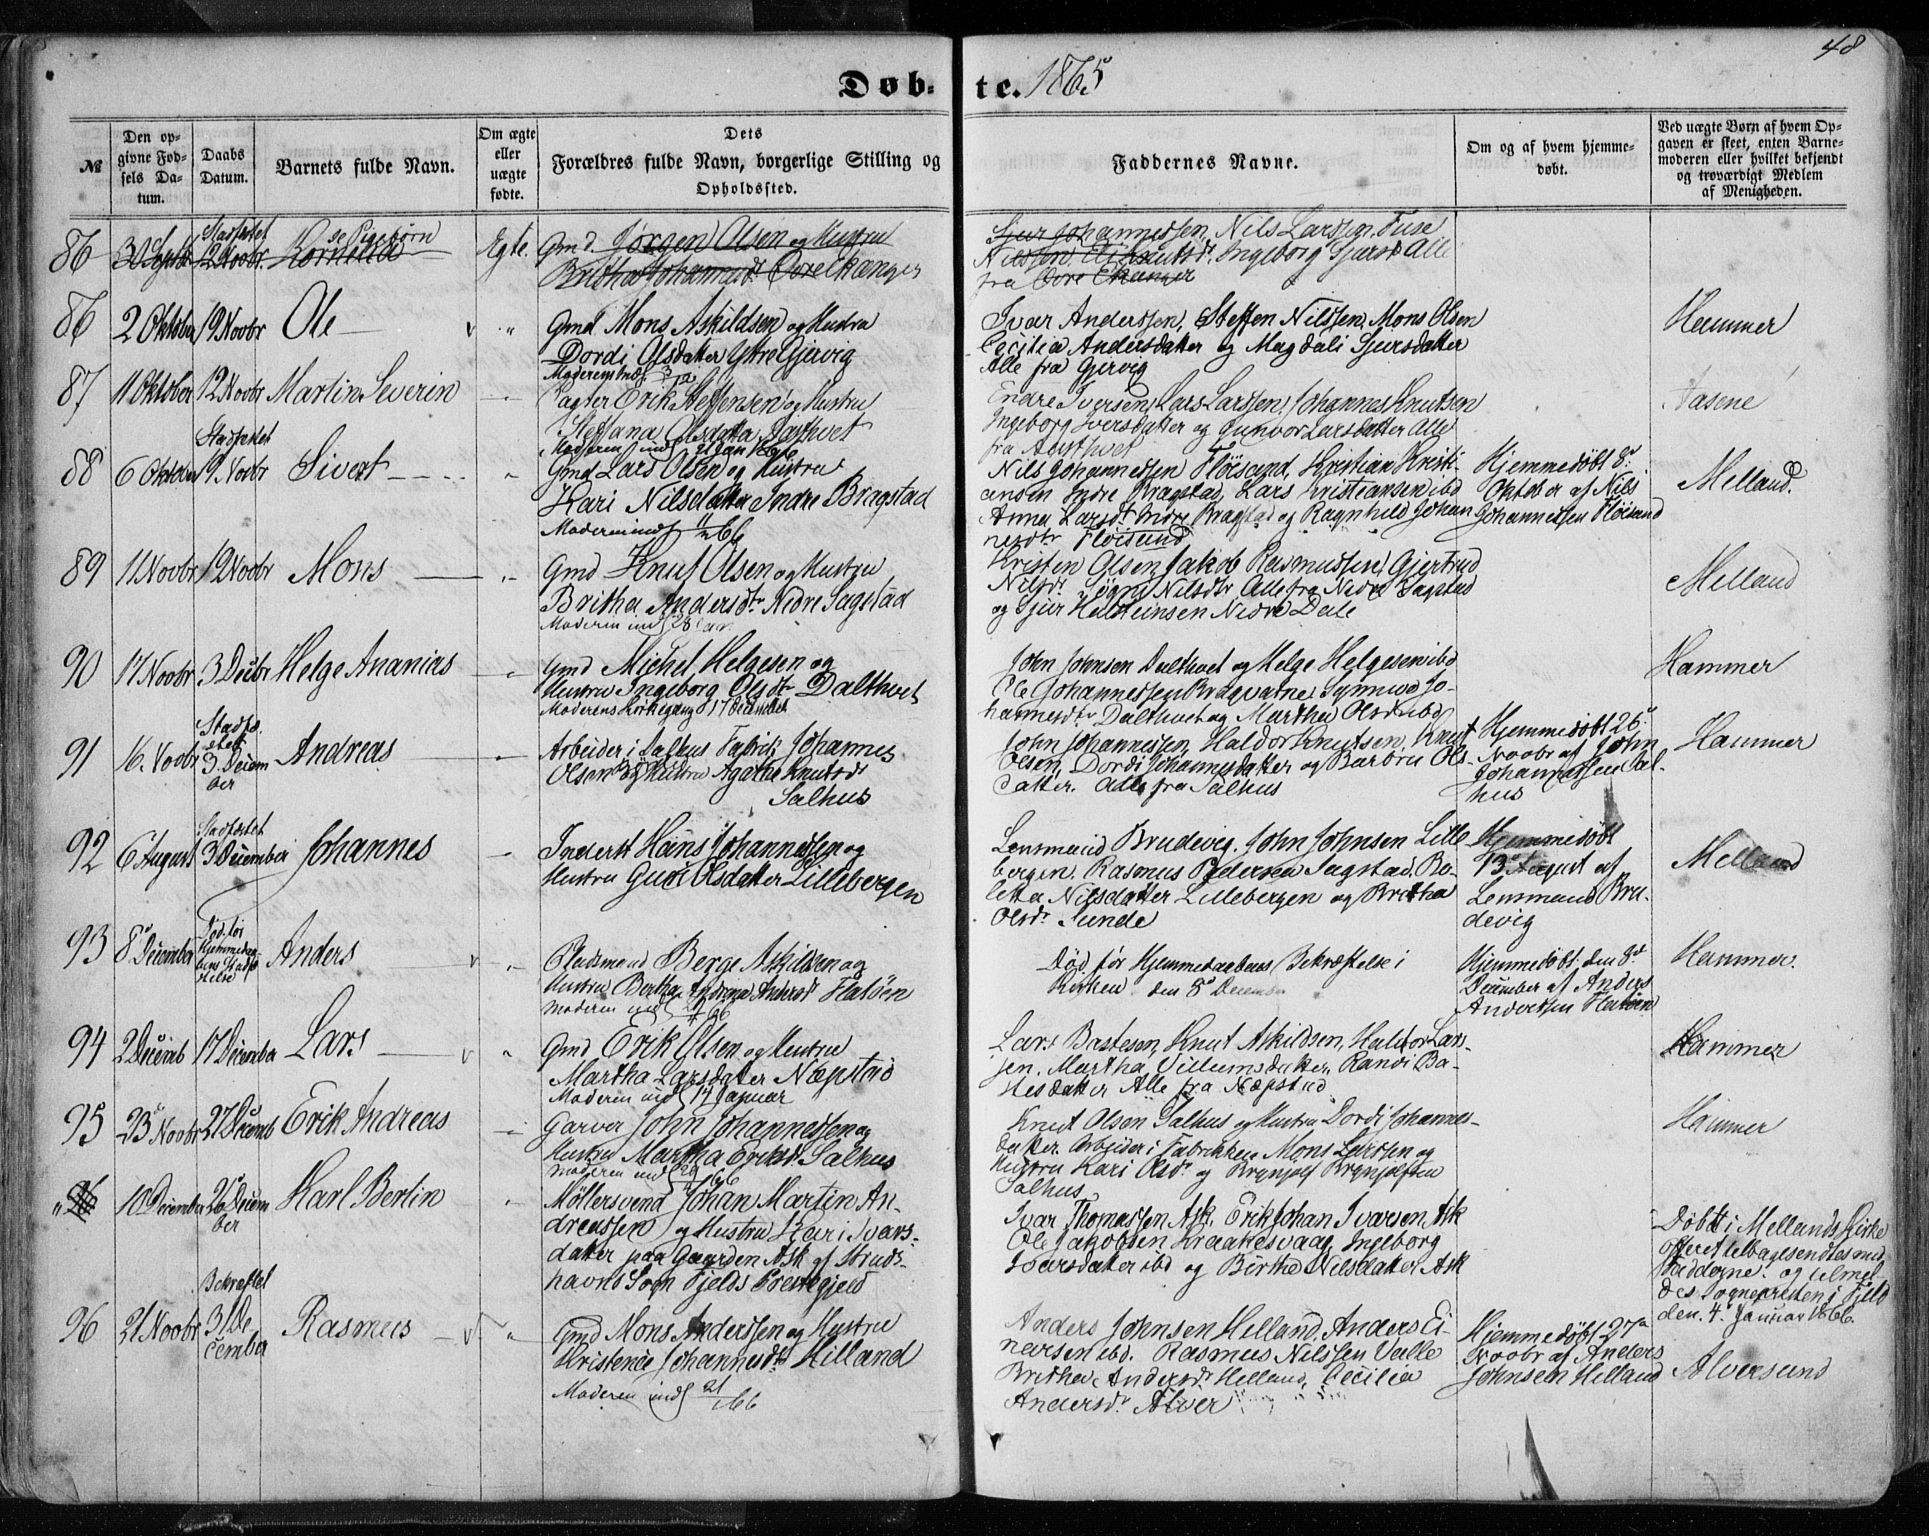 48
Døb-te. 1865
№
Den op-
givne Fød-
sels Da-
tum.
Daabs
Datum.
Barnets fulde Navn.
Om ægte
eller
uægte
fødte.
Dets
Forældres fulde Navn, borgerlige Stilling og
Opholdssted.
Faddernes Navne.
Om og af hvem hjemme-
døbt.
Ved uægte Børn af hvem Op-
gaven er skeet, enten Barne-
moderen eller hvilket bekjendt
og troværdigt Medlem
af Menigheden.
86
30 Septb
Stadfæstet
12 Novbr.
se Pigebørn
Kornelia
Ægte.
Gmd. Jørgen Olsen og Hustru
Britha Johannesdr Øvre Ekanger
Sjur Johannessen, Nils Larssen, Fuse
Ingeborg Sjursdr Alle
fra Øvre Ekanger
86
2 Oktober
19 Novbr
Ole
"
Gmd. Mons Askildsen og Hustru
Dordi Olsdatter Ytre Gjervig
Ivar Anderssen, Steffen Nilssen, Mons Olsen
Cecilia Andersdatter og Magdali Sjursdatter
Alle fra Gjervig
Hammer
87
11 Oktober
12 Novbr
Martin Severin
Pagter Erik Steffensen og Hustru
Steffana Olsdatter
Endre Iversen, Lars Larssen, Johannes Knutsen
Ingeborg Iversdatter og Gunvor Larsdatter Alle
fra
Aasene
88
6 Oktober
Stadfæstet
19 Novbr
Sivert
"
Gmd Lars Olsen og Hustru
Kari Nilsdatter Indre Bragstad
Moderen indl
Nils Johannessen Fløisand, Kristian Kristi-
ansen Indre Bragstad, Lars Kristiansen ibd
Anna Larsdr Indre Bragstad og Ragnhild Johan
nesdr Fløisand
Hjemmedøbt 8de
Oktober af Nils
Johannessen Fløisand
Melland.
89
11 Novbr
19 Novbr
Mons
"
Gmd Knut Olsen og Hustru
Britha Andersdr Nedre Sagstad
Moderen indl 28
Kristen Olsen, Jakob Rasmussen, Gjertrud
Nilsdr Søgni Nilsdtr Alle fra Nedre Sagstad
og Sjur Halsteinsen Nedre Dale
Melland
90
17 Novbr
3 Decbr
Helge Ananias
Gmd Michel Helgesen og
Hustru Ingeborg Olsdr Dalthvet
Moderens Kirkegang 17 December
John Johnsen Dalthvet og Helge Helgesen ibd
Ole Johannessen Synneva Jo-
hannesdr Dalthvet og Martha Olsdr ibd
Hammer
91
16. Novbr
Stadfæ
stet
3 Decem
ber
Andreas
Arbeider i Salhus Fabrik Johannes
Olsen og Hustru Agathe Knutsdr
Salhus
John Johannessen, Haldor Knutsen, Knut
Olsen, Dordi Johannesdatter og Barbru Ols-
datter. Alle fra Salhus
Hjemmedøbt 26de
Novbr af John
Johannessen Sal-
hus
Hammer
92
6 August
Stadfæstet
3 December
Johannes
Inderst Hans Johannessen og
Hustru Guri Olsdatter Lillebergen
Lensmand Brudevig, John Johnsen Lille
bergen. Rasmus Pedersen Sagstad, Bo-
letta Nilsdatter Lillebergen og Britha
Olsdr Sunde
Hjemmedøbt
13 August af
Lensmand Bru-
devig
Melland
93
8 December
Død før
Hjemmedaa-
bens Stadfæ
stelse
Anders
Pladsmand Berge Askildsen og
Hustru Bertha Andrea Andersdr Flatøen
Moderen indl
Død før Hjemmedaabens Bekræftelse i
Kirken den 8de December
Hjemmedøbt den 8de
December af Anders
Andersen Flatøen
Hammer.
94
2 Decemb
17 December
Lars
"
Gmd Erik Olsen og Hustru
Martha Larsdatter Næpstad
Moderen indl 14 Januar
Lars Bastesen, Knut Askildsen, Haldor Lar-
sen, Martha Villumsdatter, Randi Ba-
stesdatter Alle fra Næpstad
Hammer
95
23 Novbr
27 Decemb
Erik Andreas
Garver John Johannessen og
Hustru Martha Eriksdr Salhus
Moderen indl
Knut Olsen Salhus og Hustru Dordi Johannes-
datter. Arbeider i Fabrikken Mons Larssen og
Hustru Kari Olsdr og Brynjolf Brynjolfsen
Salhus
Hammer
10 December
26 Decem
ber
Karl Bertin
Møllersvend Johan Martin An-
dreassen og Hustru Kari Ivars-
datter paa Gaarden Ask af Struds-
havns Sogn Fjelds Prestegjeld
Ivar Thomassen Ask, Erik Johan Ivarsen Ask
Ole Jakobsen Kraakesvaag, Ingeborg
Ivarsdatter ibd og Birthe Nilsdatter Ask
Døbt i Mellands Kirke
Offeret tilbagesendtes med
Fadderne og tilmel-
des Sognepresten i Fjeld
den 4. Januar 1866.
96
21 Novbr
Bekræftet
31 De
cember
Rasmus
"
Gmd Mons Anderssen og Hustru
Kristence Johannesdr Helland
Moderen indl 21/1 66
Anders Johnsen Helland, Anders Ei-
narsen ibd. Rasmus Nilssen Valle
Britha Andersdr Helland, Cecilia
Andersdr Alver
Hjemmedøbt 27de
Novbr af Anders
Johnsen Helland
Alversund